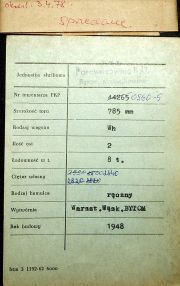 określ. 3.4.78
Sprzedane
Jednostka służbowa
Nr inwentarza PKP 44265 0560-5
Szerokość toru 785 mm
Rodzaj wagonu Wh
Ilość osi 2
Ładowność w t. 8 t.
Ciężar własny
Rodzaj hamulca ręczny
Wytwórnia Warszt. Wąsk. BYTOM
Rok budowy 1948